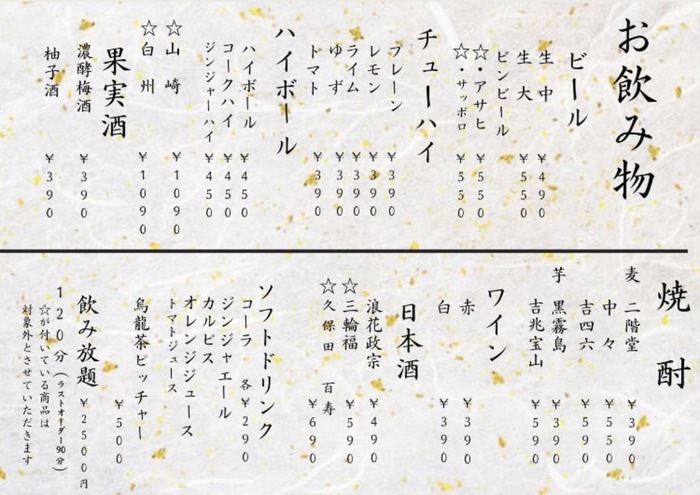 お飲み物
ビール
生 中 ¥490
生 大 ¥550
ビンビール
☆・アサヒ ¥550
☆・サッポロ ¥550
チューハイ
プレーン ¥390
レモン ¥390
ライム ¥390
ゆず ¥390
トマト ¥390
ハイボール
ハイボール ¥450
コークハイ ¥450
ジンジャーハイ ¥450
☆山 崎 ¥1090
☆白 州 ¥1090
果実酒
濃酵梅酒 ¥390
柚子酒 ¥390
焼 酎
麦 二階堂 ¥390
中々 ¥550
吉四六 ¥590
芋 黒霧島 ¥390
吉兆宝山 ¥590
ワイン
赤 ¥390
白 ¥390
日本酒
浪花政宗 ¥490
☆三輪福 ¥590
☆久保田 百寿 ¥690
ソフトドリンク
コーラ 各¥290
ジンジャエール
カルピス
オレンジジュース
トマトジュース
烏龍茶ピッチャー
¥500
飲み放題 ¥2500円
120分(ラストオーダー90分)
☆が付いている商品は
対象外とさせていただきます